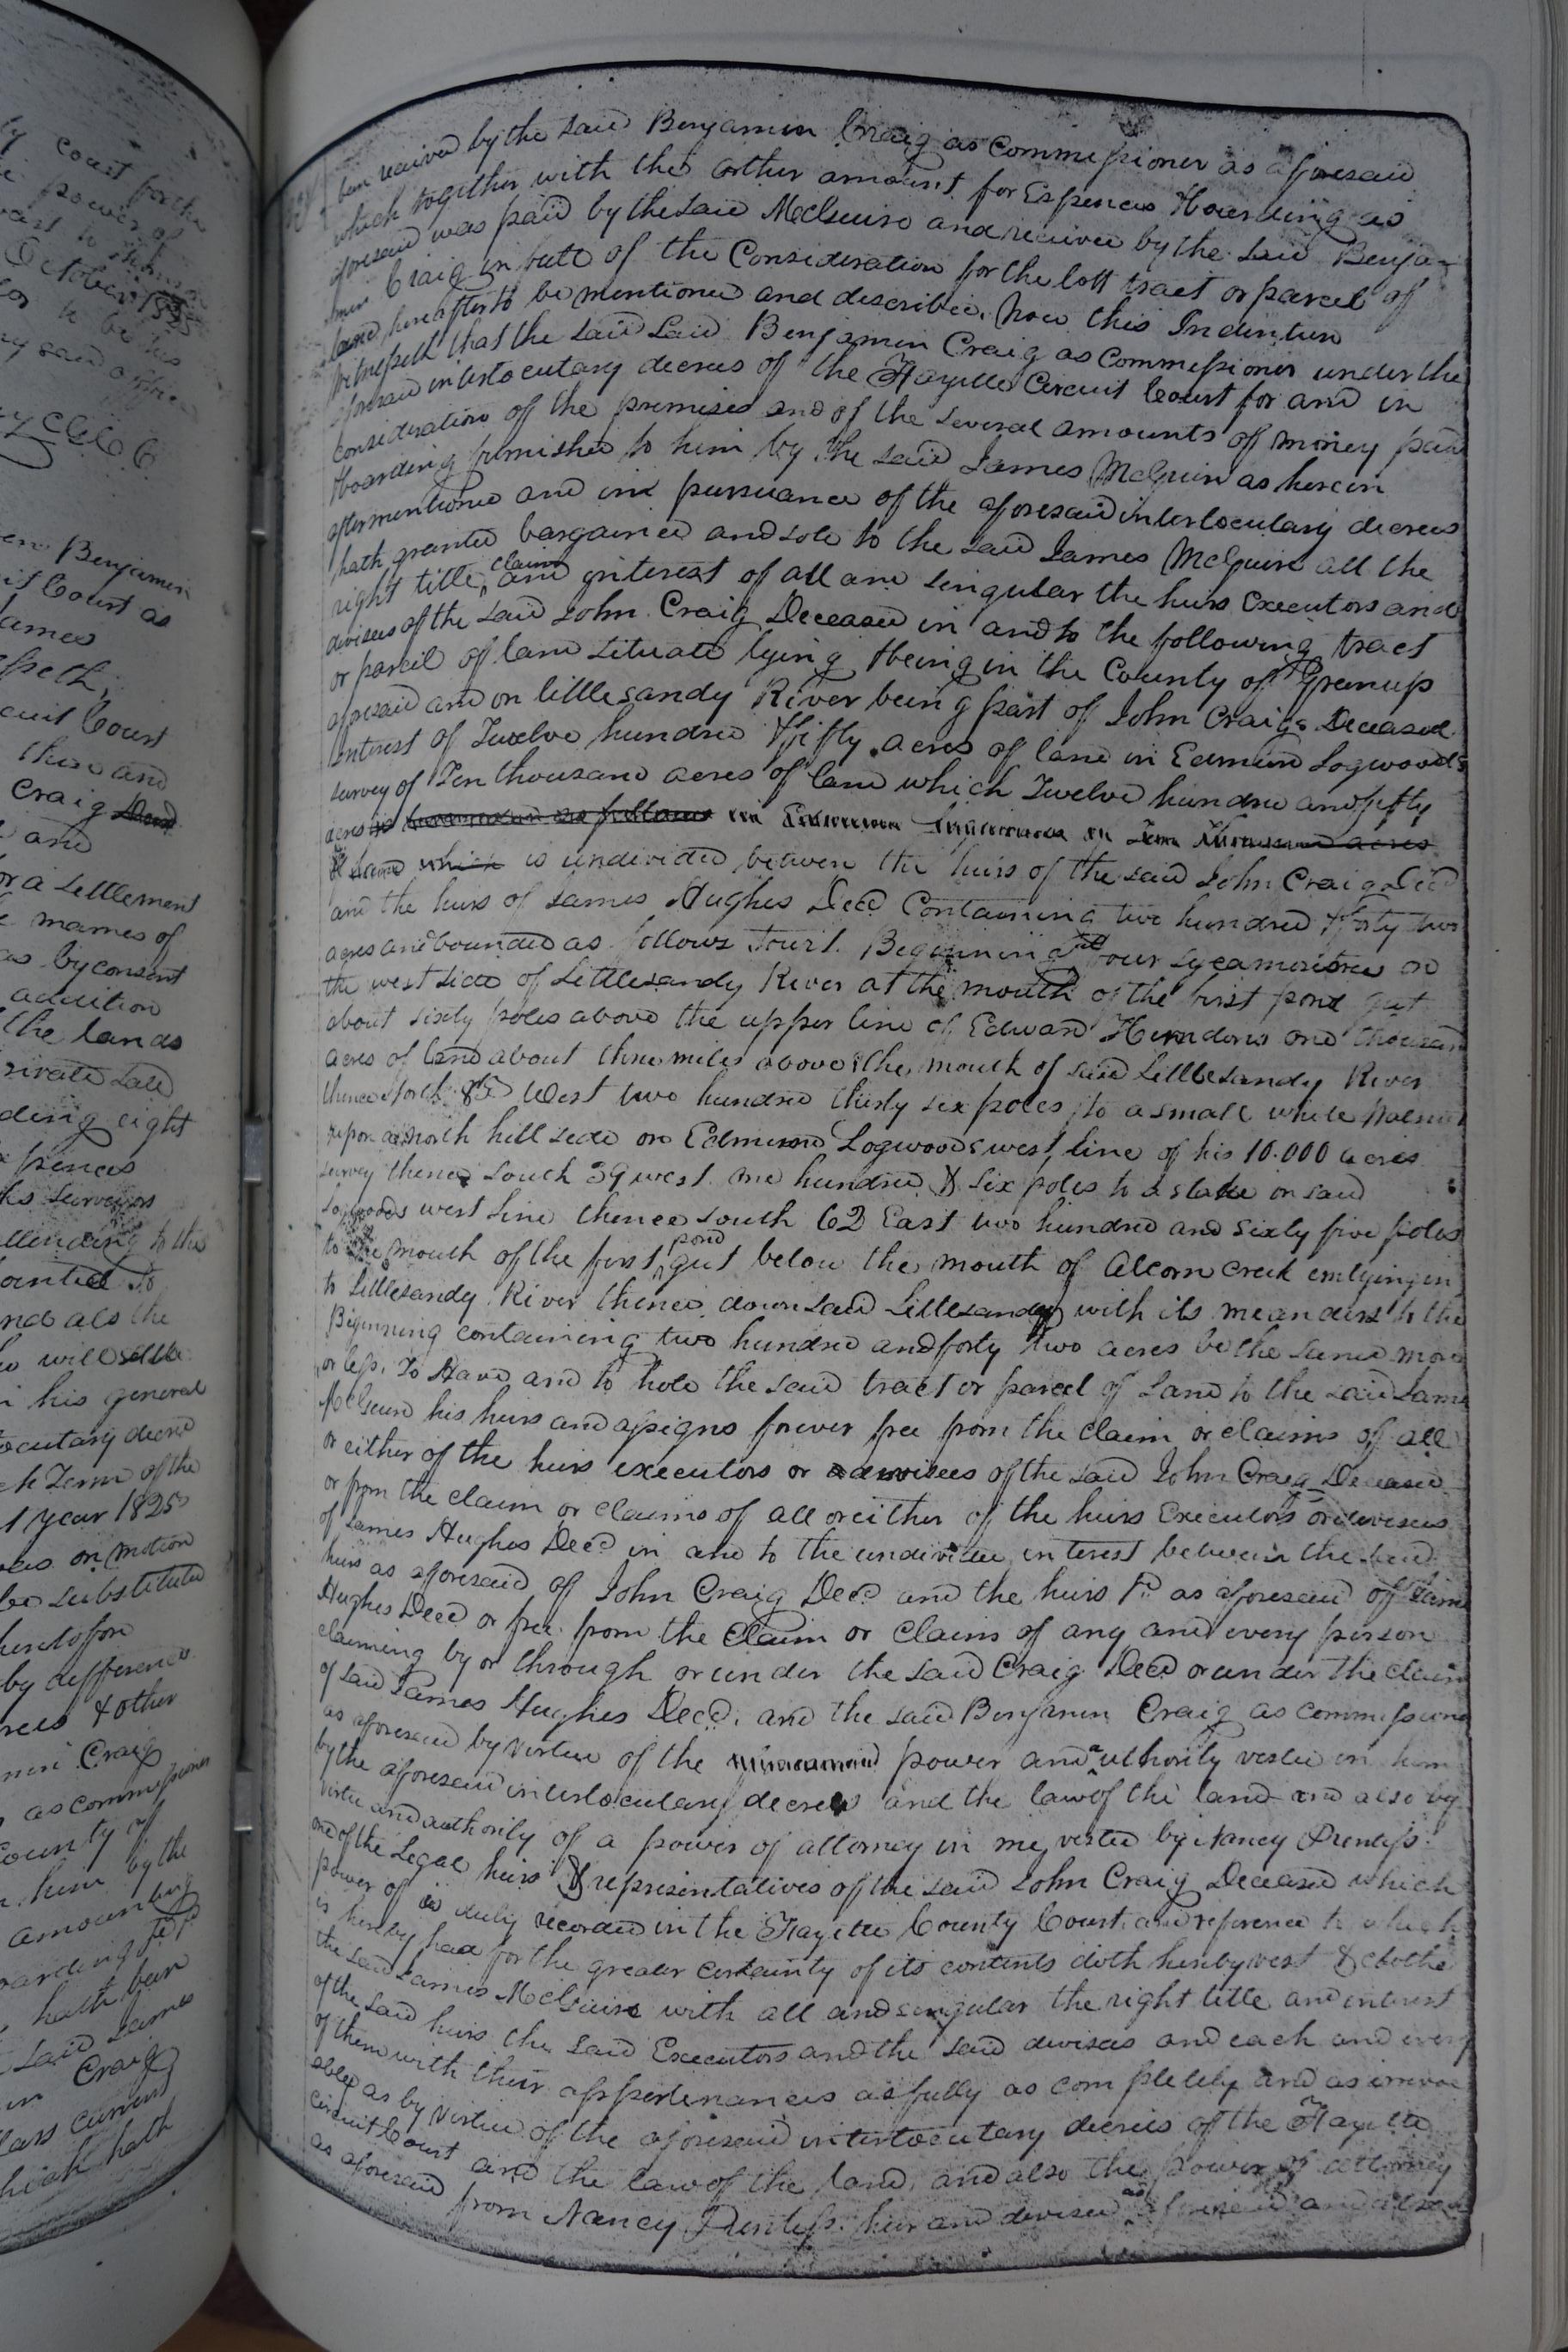 ly Court for the
power of
October 1825
to be his
said office
CGCC
Benjamin
Court as
James
sseth,
cuit Court
then and
Craig Decd
and
or a settlement
names of
as by consent
addition
the lands
rivate sale
ding eight
pences
ks surveyors
ttending to the
ointed to
nd als the
his general
ocutary decree
ch Term of the
year 1825
on motion
be substituted
heretofore
by difference
& other
min Craig
as commissioner
County of
him by the
amounting
oarding &c
hath been
said James
in Craig
lars current
which hath
ben received by the said Benjamin Craig as Commissioner as aforesaid
which together with the other amount for Expences & boarding as
aforesaid was paid by the said McGuire and received by the said Benja-
min Craig in full of the Consideration for the lott tract or parcel of
land hereafter to be mentioned and described. Now this Indenture
Witnesseth that the said said Benjamin Craig as Commissioner under the
aforesaid interlocutary decrees of the Fayette Circuit Court for and in
consideration of the premises and of the several amounts of money paid
& boarding furnished to him by the said James McGuire as herein
aftermentioned and in pursuance of the aforesaid interlocutary decrees
hath granted bargained and sold to the said James McGuire all the
right title, claim and interest of all and singular the heirs Executors and
devisees of the said John Craig Deceased in and to the following tract
or parcel of land situate lying & being in the County of Greenup
aforesaid and on little sandy River being part of John Craigs Deceased
interest of Twelve hundred & fifty acres of land in Edmund Logwoods
survey of Ten thousand acres of land which Twelve hundred and fifty
acres is as follows in Ten Thousand acres
of land which is undivided between the heirs of the said John Craig Decd
and the heirs of James Hughes Decd Containing two hundred & forty two
acres and bounded as follows Towit. Beginning at four sycamoretrees on
the west side of Little sandy River at the mouth of the first pond gut
about sixty poles above the upper line of Edward Herndons one thousand
acres of land about three miles above the mouth of said Little sandy River
thence North West two hundred thirty six poles to a small white Walnut
upon a north hill side on Edmund Logwoods west line of his 10.000 acres
survey thence south 39 west one hundred & six poles to a stake on said
Logwoods west line thence south 62 East two hundred and sixty five poles
to the mouth of the first pond gut below the mouth of Alcorn creek emtying in
to Little sandy River thence down said Little sandy with its meanders to the
Beginning containing two hundred and forty two acres be the same more
or less. To Have and to hold the said tract or parcel of Land to the said James
McGuire his heirs and assigns forever free from the claim or claims of all
or either of the heirs executors or devisees of the said John Craig Deceased
or from the claim or claims of all or either of the heirs Executors or devisees
of James Hughes Decd in and to the undivided interest between the said
heirs as aforesaid of John Craig Decd and the heirs as aforesaid of James
Hughes Decd or free from the Claim or Claims of any and every person
claiming by or through or under the said Craig Decd or under the claim
of said James Hughes Decd. and the said Benjamin Craig as commissioner
as aforesaid by virtue of the power and authority vested in him
by the aforesaid interlocutary decrees and the law of the land and also by
virtue and authority of a power of attorney in me vested by Nancy Prentiss
one of the Legal heirs & representatives of the said John Craig Deceased which
power of is duly recorded in the Fayette County Court and reference to which
is hereby had for the greater certainty of its contents doth hereby vest & clothe
the said James McGuire with all and singular the right title and interest
of the said heirs the said Executors and the said devisees and each and every
of them with their appertenances as fully as completely and as irrevoc
ably as by virtue of the aforesaid interlocutary decrees of the Fayette
Circuit Court and the law of the land, and also the power of attorney
as aforesaid from Nancy Prentiss heir and devisee as aforesaid and also